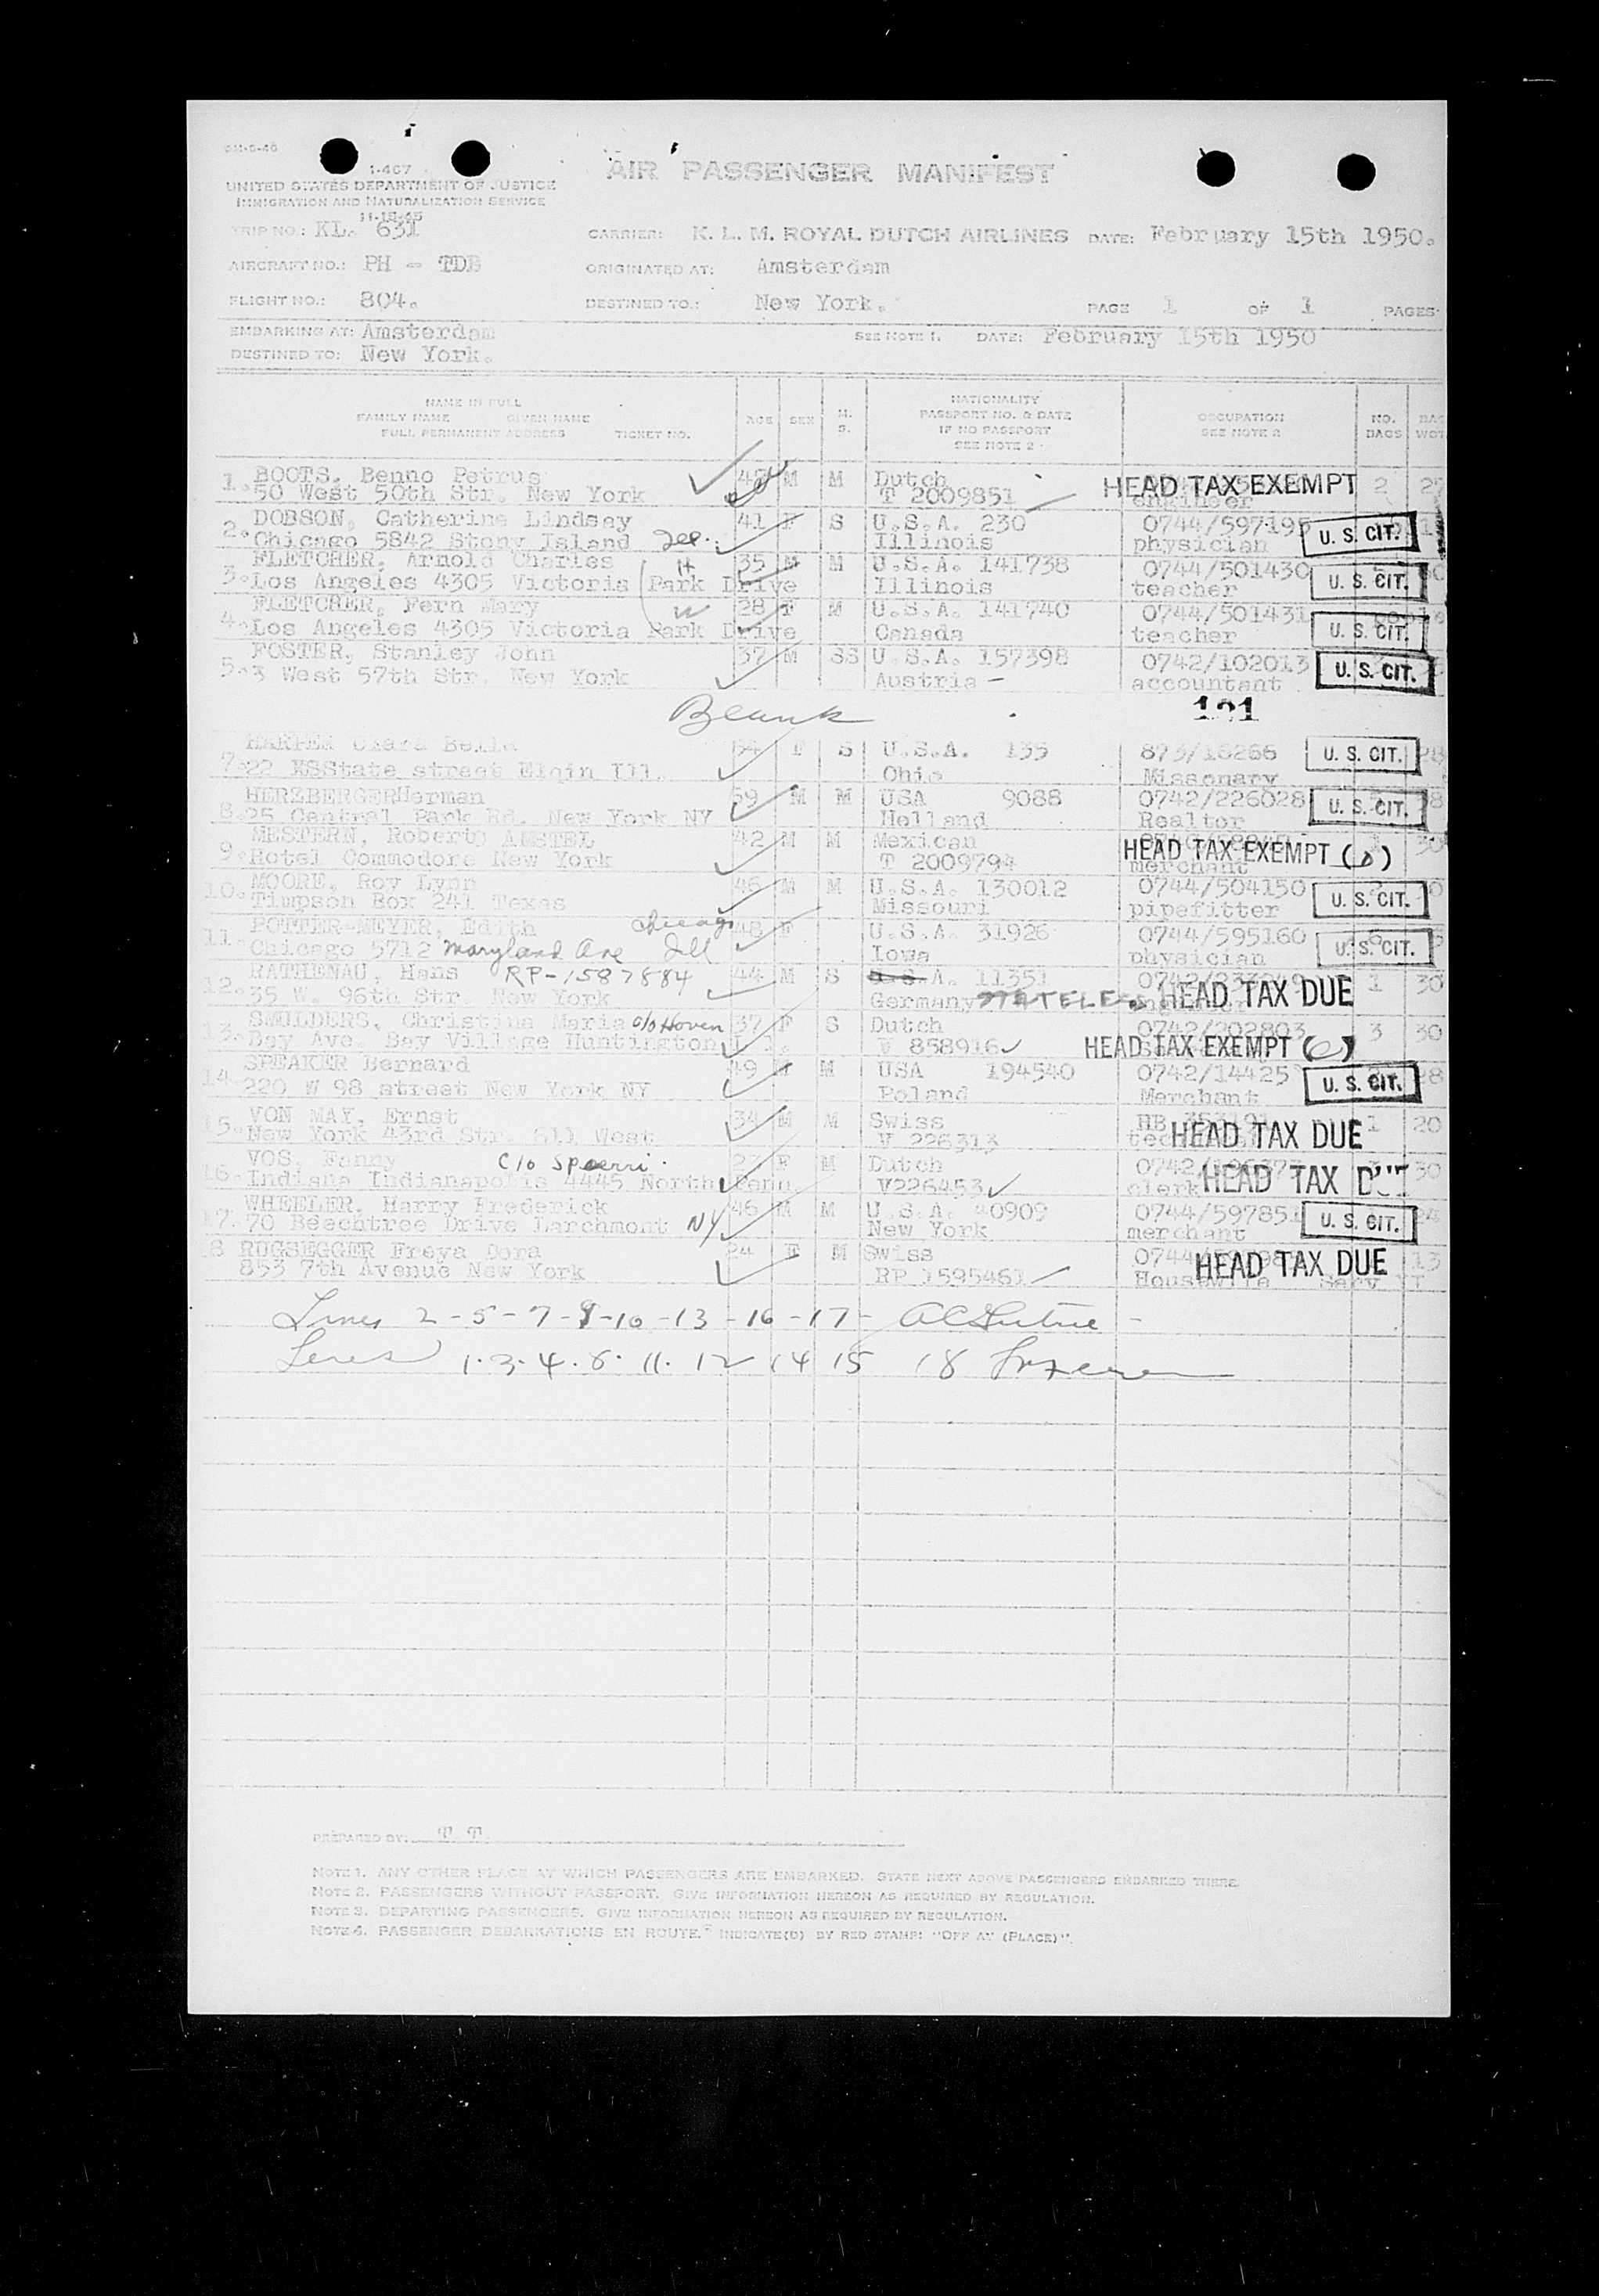 I-467
AIR PASSENGER MANIFEST
UNITED STATES DEPARTMENT OF JUSTICE
IMMIGRATION AND NATURALIZATION SERVICE
11-15-45
TRIP NO.: KL. 631 CARRIER: K. L. M. ROYAL DUTCH AIRLINES DATE: February 15th 1950.
AIRCRAFT NO.: PH - TDB ORIGINATED AT: Amsterdam
FLIGHT NO.: 804. DESTINED TO.: New York. PAGE 1 OF 1 PAGES
EMBARKING AT: Amsterdam SEE NOTE 1. DATE: February 15th 1950
DESTINED TO: New York.
NAME IN FULL
FAMILY NAME GIVEN NAME
FULL PERMANENT ADDRESS TICKET NO.
AGE SEX M. S.
NATIONALITY
PASSPORT NO. & DATE
IF NO PASSPORT
SEE NOTE 2
OCCUPATION
SEE NOTE 2
NO. BAGS
1. BOOTS, Benno Petrus M M Dutch HEAD TAX EXEMPT 2 27
50 West 50th Str. New York T 2009851 engineer
2. DOBSON, Catherine Lindsay 41 F S U.S.A. 230 0744/597195 U. S. CIT.
Chicago 5842 Stony Island Illinois physician
3. FLETCHER, Arnold Charles H 35 M M U.S.A. 141738 0744/501430 U. S. CIT.
Los Angeles 4305 Victoris Park Drive Illinois teacher
4. FLETCHER, Fern Mary W 28 F M U.S.A. 141740 0744/501431 U. S. CIT.
Los Angeles 4305 Victoria Park Drive Canada teacher
5. FOSTER, Stanley John 37 M SS U.S.A. 157398 0742/102013 U. S. CIT.
3 West 57th Str. New York Austria - accountant
Blank
7. HARPER Clara Bella 54 F S U.S.A. 135 873/16266 U. S. CIT.
22 ESState street Elgin Ill. Ohio Missonary
8. HERZBERGERHerman 59 M M USA 9088 0742/226028 U. S. CIT.
25 Central Park Rd. New York NY Holland Realtor
9. MESTERN, Roberto AMSTEL 42 M M Mexican HEAD TAX EXEMPT 30
Hotel Commodore New York T 2009794 merchant
10. MOORE, Roy Lynn 46 M M U.S.A. 130012 0744/504150 U. S. CIT.
Timpson Box 241 Texas Missouri pipefitter
11. POTTER-MEYER, Edith Chicago 48 F U.S.A. 31926 0744/595160 U. S. CIT.
Chicago 5712 Maryland Ave Ill Iowa physician
12. RATHENAU, Hans RP-1587884 44 M S U.S.A. 11351 HEAD TAX DUE 1 30
35 W. 96th Str. New York Germany STATELESS
13. SMULDERS, Christina Maria c/o Hoven 37 F S Dutch 0742/202803 3 30
Bay Ave. Bay Village Huntington L.I. V 858916 HEAD TAX EXEMPT
14. SPEAKER Bernard 49 M M USA 194540 0742/14425 U. S. CIT.
220 W 98 street New York NY Poland Merchant
15. VON MAY, Ernst 34 M M Swiss HEAD TAX DUE 1 20
New York 43rd Str. 611 West V 226313
16. VOS, Fanny c/o Spoerri F M Dutch HEAD TAX 30
Indiana Indianapolis 4445 North Penn. V226453 clerk
17. WHEELER, Harry Frederick 46 M M U.S.A. 40909 0744/597851 U. S. CIT.
70 Beechtree Drive Larchmont NY New York merchant
18 RUGSEGGER Freya Dora 24 F M Swiss HEAD TAX DUE 13
853 7th Avenue New York RP 1595461 Housewife
Lines 2-5-7-9-10-13-16-17-
Lines 1.3.4.8.11.12 14 15 18
PREPARED BY: T.T.
NOTE 1. ANY OTHER PLACE AT WHICH PASSENGERS ARE EMBARKED. STATE NEXT ABOVE PASSENGERS EMBARKED THERE.
NOTE 2. PASSENGERS WITHOUT PASSPORT. GIVE INFORMATION HEREON AS REQUIRED BY REGULATION.
NOTE 3. DEPARTING PASSENGERS. GIVE INFORMATION HEREON AS REQUIRED BY REGULATION.
NOTE 4. PASSENGER DEBARKATIONS EN ROUTE. INDICATE(D) BY RED STAMP: "OFF AT (PLACE)".